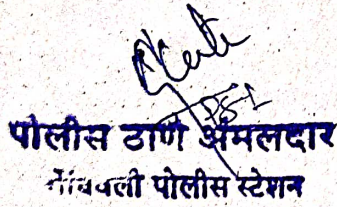 PSI
पोलीस ठाणे अंमलदार
पोलीस स्टेशन